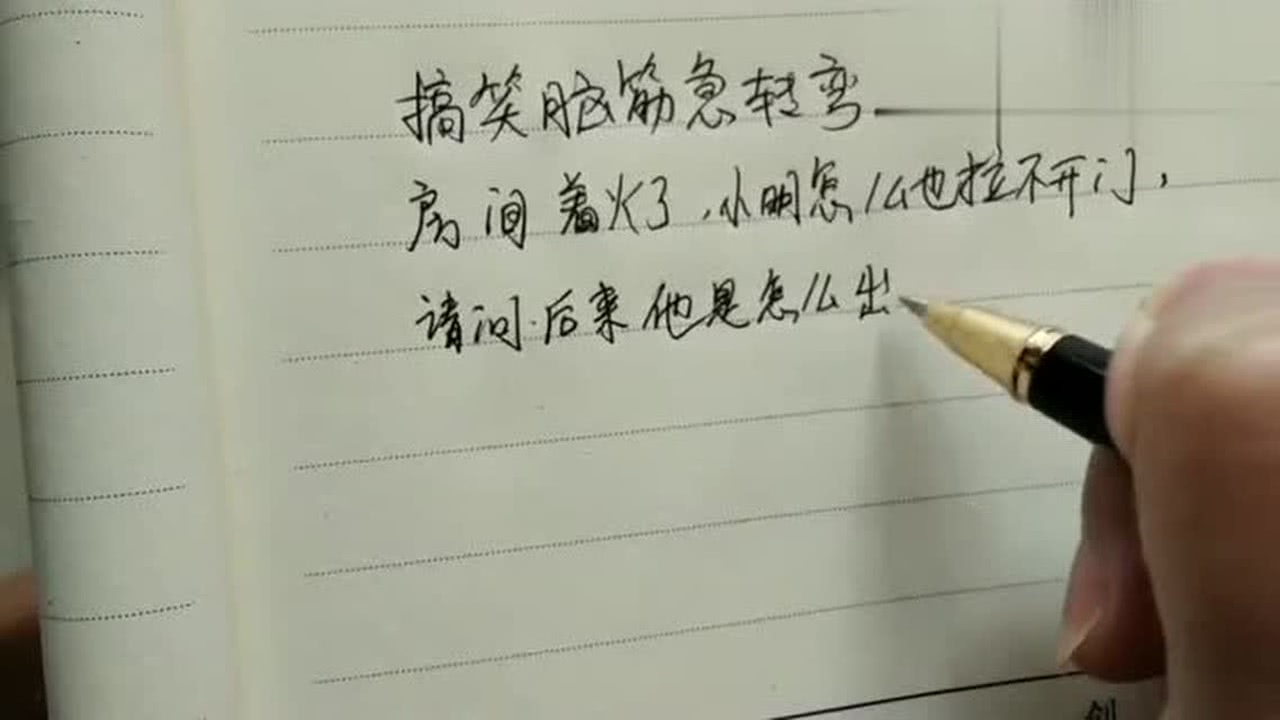 搞笑脑筋急转弯
房间着火了,小明怎么也拉不开门,
请问.后来他是怎么出
创